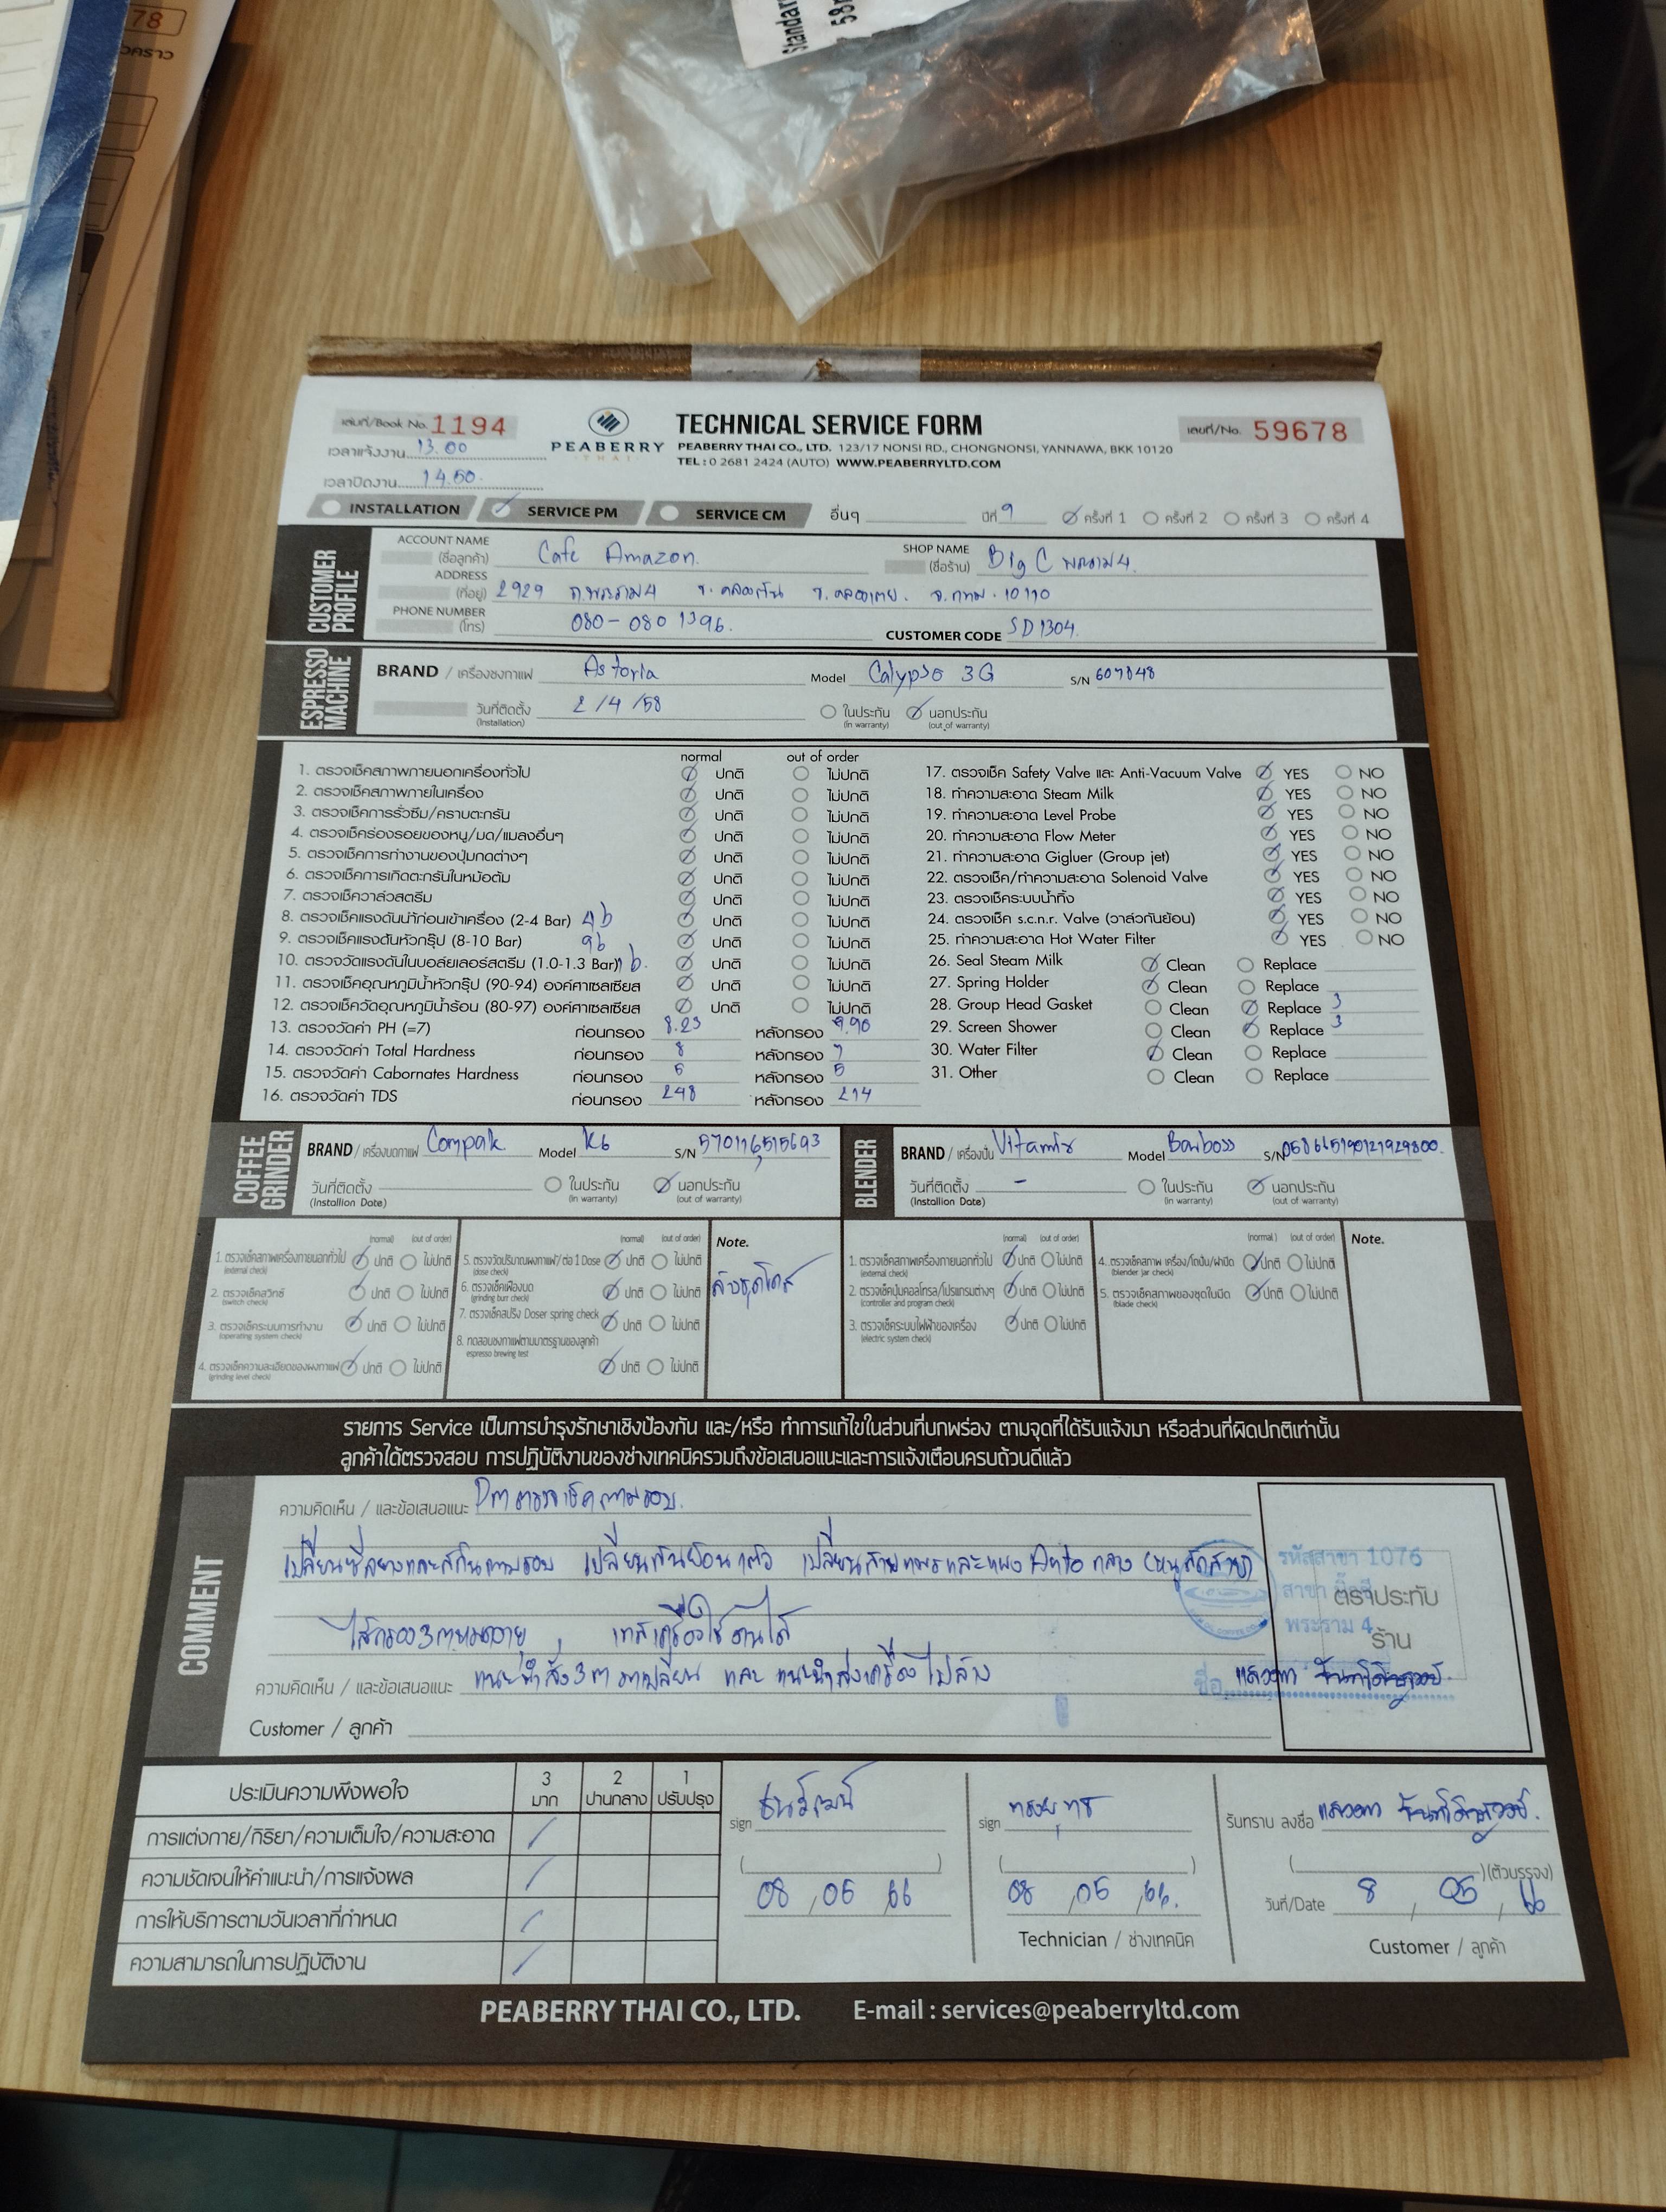 78
วคราว
Standar
58
เล่มที่/Book No. 1194
PEABERRY
THAI
TECHNICAL SERVICE FORM
PEABERRY THAI CO., LTD. 123/17 NONSI RD., CHONGNONSI, YANNAWA, BKK 10120
TEL : 0 2681 2424 (AUTO) WWW.PEABERRYLTD.COM
เลขที่/No. 59678
เวลาแจ้งงาน 13.00
เวลาปิดงาน 14.50
INSTALLATION SERVICE PM SERVICE CM อื่นๆ ปีที่ 9 ครั้งที่ 1 ครั้งที่ 2 ครั้งที่ 3 ครั้งที่ 4
CUSTOMER PROFILE
ACCOUNT NAME (ชื่อลูกค้า) Cafe Amazon SHOP NAME (ชื่อร้าน) Big C พระราม 4
ADDRESS (ที่อยู่) 2929 ถ.พระราม4 ข.คลองตัน ข.คลองเตย. จ.กทม. 10110
PHONE NUMBER (โทร) 080-080 1396. CUSTOMER CODE SD1304.
ESPRESSO MACHINE
BRAND / เครื่องชงกาแฟ Astoria Model Calypso 3G S/N 607848
วันที่ติดตั้ง (Installation) 2/4/58 ในประกัน (in warranty) นอกประกัน (out of warranty)
normal out of order
1. ตรวจเช็คสภาพภายนอกเครื่องทั่วไป ปกติ ไม่ปกติ
2. ตรวจเช็คสภาพภายในเครื่อง ปกติ ไม่ปกติ
3. ตรวจเช็คการรั่วซึม/คราบตะกรัน ปกติ ไม่ปกติ
4. ตรวจเช็คร่องรอยของหนู/มด/แมลงอื่นๆ ปกติ ไม่ปกติ
5. ตรวจเช็คการทำงานของปุ่มกดต่างๆ ปกติ ไม่ปกติ
6. ตรวจเช็คการเกิดตะกรันในหม้อต้ม ปกติ ไม่ปกติ
7. ตรวจเช็ควาล์วสตรีม ปกติ ไม่ปกติ
8. ตรวจเช็คแรงดันน้ำก่อนเข้าเครื่อง (2-4 Bar) 4b ปกติ ไม่ปกติ
9. ตรวจเช็คแรงดันหัวกรุ๊ป (8-10 Bar) 9b ปกติ ไม่ปกติ
10. ตรวจวัดแรงดันในบอล์ยเลอร์สตรีม (1.0-1.3 Bar) 1 b. ปกติ ไม่ปกติ
11. ตรวจเช็คอุณหภูมิน้ำหัวกรุ๊ป (90-94) องศาเซลเซียส ปกติ ไม่ปกติ
12. ตรวจเช็ควัดอุณหภูมิน้ำร้อน (80-97) องศาเซลเซียส ปกติ ไม่ปกติ
13. ตรวจวัดค่า PH (=7) ก่อนกรอง 8.23 หลังกรอง
14. ตรวจวัดค่า Total Hardness ก่อนกรอง 8 หลังกรอง 7
15. ตรวจวัดค่า Cabornates Hardness ก่อนกรอง 6 หลังกรอง 5
16. ตรวจวัดค่า TDS ก่อนกรอง 248 หลังกรอง 214
17. ตรวจเช็ค Safety Valve และ Anti-Vacuum Valve YES NO
18. ทำความสะอาด Steam Milk YES NO
19. ทำความสะอาด Level Probe YES NO
20. ทำความสะอาด Flow Meter YES NO
21. ทำความสะอาด Gigluer (Group jet) YES NO
22. ตรวจเช็ค/ทำความสะอาด Solenoid Valve YES NO
23. ตรวจเช็คระบบน้ำทิ้ง YES NO
24. ตรวจเช็ค s.c.n.r. Valve (วาล์วกันย้อน) YES NO
25. ทำความสะอาด Hot Water Filter YES NO
26. Seal Steam Milk Clean Replace
27. Spring Holder Clean Replace
28. Group Head Gasket Clean Replace 3
29. Screen Shower Clean Replace 3
30. Water Filter Clean Replace
31. Other Clean Replace
COFFEE GRINDER
BRAND / เครื่องบดกาแฟ Compak Model K6 S/N 570116515693
วันที่ติดตั้ง (Installion Date) ในประกัน (in warranty) นอกประกัน (out of warranty)
BLENDER
BRAND / เครื่องปั่น Vitamix Model Barboss S/N 058665190121929800.
วันที่ติดตั้ง (Installion Date) - ในประกัน (in warranty) นอกประกัน (out of warranty)
(normal) (out of order)
1. ตรวจเช็คสภาพเครื่องภายนอกทั่วไป (external check) ปกติ ไม่ปกติ
2. ตรวจเช็คสวิทซ์ (switch check) ปกติ ไม่ปกติ
3. ตรวจเช็คระบบการทำงาน (operating system check) ปกติ ไม่ปกติ
4. ตรวจเช็คความละเอียดของผงกาแฟ (grinding level check) ปกติ ไม่ปกติ
(normal) (out of order)
5. ตรวจวัดปริมาณผงกาแฟ/ต่อ 1 Dose (dose check) ปกติ ไม่ปกติ
6. ตรวจเช็คเฟืองบด (grinding burr check) ปกติ ไม่ปกติ
7. ตรวจเช็คสปริง Doser spring check ปกติ ไม่ปกติ
8. ทดสอบชงกาแฟตามมาตรฐานของลูกค้า espresso brewing test ปกติ ไม่ปกติ
Note.
ล้างชุดโดส
(normal) (out of order)
1. ตรวจเช็คสภาพเครื่องภายนอกทั่วไป (external check) ปกติ ไม่ปกติ
2. ตรวจเช็คปุ่มคอลโทรล/โปรแกรมต่างๆ (controller and program check) ปกติ ไม่ปกติ
3. ตรวจเช็คระบบไฟฟ้าของเครื่อง (electric system check) ปกติ ไม่ปกติ
(normal) (out of order)
4. ตรวจเช็คสภาพ เครื่อง/โถปั่น/ฝาปิด (blender jar check) ปกติ ไม่ปกติ
5. ตรวจเช็คสภาพของชุดใบมีด (blade check) ปกติ ไม่ปกติ
Note.
รายการ Service เป็นการบำรุงรักษาเชิงป้องกัน และ/หรือ ทำการแก้ไขในส่วนที่บกพร่อง ตามจุดที่ได้รับแจ้งมา หรือส่วนที่ผิดปกติเท่านั้น
ลูกค้าได้ตรวจสอบ การปฏิบัติงานของช่างเทคนิครวมถึงข้อเสนอแนะและการแจ้งเตือนครบถ้วนดีแล้ว
COMMENT
ความคิดเห็น / และข้อเสนอแนะ Pm ตรวจเช็คตามรอบ.
เปลี่ยนซีลยางและสกรีนตามรอบ เปลี่ยนกันย้อน เปลี่ยนสายแพรและแผง Auto กลาง (หนูกัดสาย)
ไส้กรอง 3m หมดอายุ เทสเครื่องใช้งานได้
ความคิดเห็น / และข้อเสนอแนะ แนะนำสั่ง 3m มาเปลี่ยน และ แนะนำส่งเครื่องไปล้าง
Customer / ลูกค้า
รหัสสาขา 1076
สาขา บิ๊กซี
พระราม 4
ชื่อ
ตราประทับ
ร้าน
ประเมินความพึงพอใจ 3 มาก 2 ปานกลาง 1 ปรับปรุง
การแต่งกาย/กิริยา/ความเต็มใจ/ความสะอาด
ความชัดเจนให้คำแนะนำ/การแจ้งผล
การให้บริการตามวันเวลาที่กำหนด
ความสามารถในการปฏิบัติงาน
sign ธนวัฒน์
08 05 66
sign ทรงยุทธ
08 05 66.
Technician / ช่างเทคนิค
รับทราบ ลงชื่อ
(ตัวบรรจง)
วันที่/Date 8 05 66
Customer / ลูกค้า
PEABERRY THAI CO., LTD. E-mail : services@peaberryltd.com